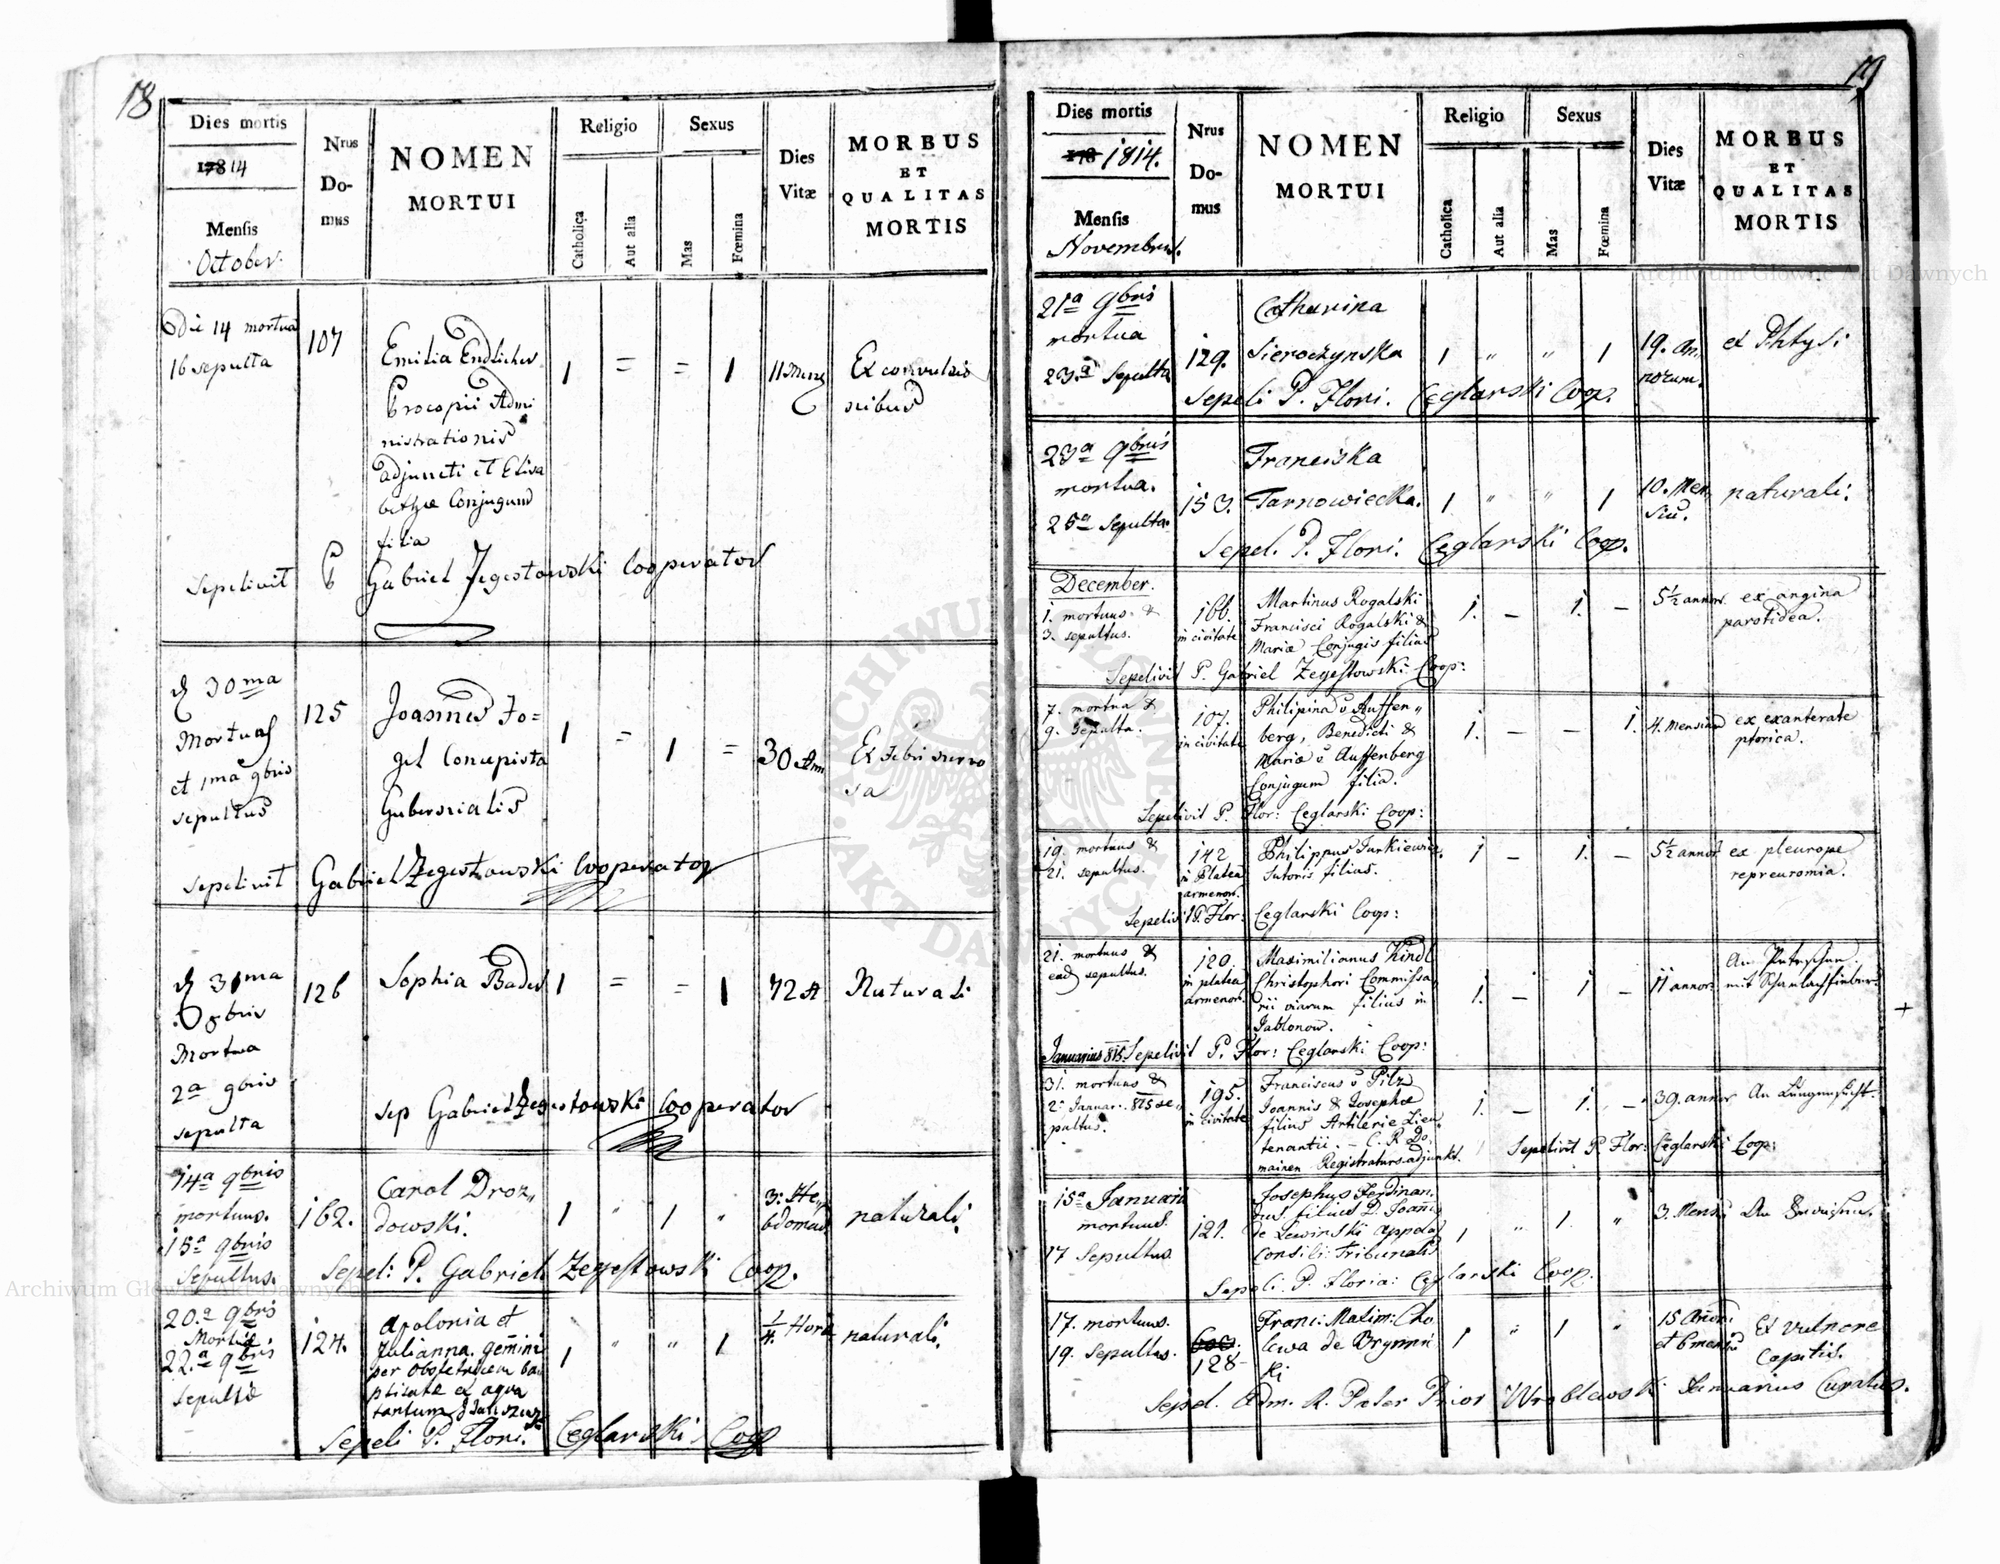 18
Dies mortis
17814
Mensis
October.
Nrus
Do-
mus
NOMEN
MORTUI
Religio
Catholica
Aut alia
Sexus
Mas
Fœmina
Dies
Vitæ
MORBUS
ET
QUALITAS
MORTIS
Die 14 mortua
16 sepulta
107
Emilia Endlicher
Procopii Admi
nistrationis
adjuncti et Elisa
bethæ Conjugum
filia
1 = = 1
11 Mens
Ex convulsio
nibus
Sepelivit P Gabriel Zegestowski Cooperator
30ma
Mortuus
et 1ma 9bris
sepultus
125
Joannes Fo=
gel Concipista
Gubernialis
1 = 1 =
30 Ann
Ex febri nervo
sa
sepelivit Gabriel Zegestowski Cooperator
31ma
8bris
Mortua
2a 9bris
sepulta
126
Sophia Bader
1 = = 1
72 A
Naturali
sep Gabriel Zegestowski Cooperator
14a 9bris
mortuus.
15a 9bris
Sepultus.
162.
Carol Droz„
dowski.
1 " 1 "
3: He„
bdomad
naturali.
Sepeli: P. Gabriel Zegestowski Coop.
20.a 9bris
Mortæ
22.a 9bris
sepultæ
124.
Apolonia et
Julianna. gemini
per obstetricem ba„
ptisatæ ex aqua
tantum
1 " " 1
1/4. Hora
naturali.
Sepeli P. Flori. Ceglarski Coop
19
Dies mortis
178 1814.
Mensis
Novembris.
Nrus
Do-
mus
NOMEN
MORTUI
Religio
Catholica
Aut alia
Sexus
Mas
Fœmina
Dies
Vitæ
MORBUS
ET
QUALITAS
MORTIS
21a 9bris
mortua
23.a Sepulta
129.
Catharina
Sieroczynska
1 " " 1
19. An„
norum.
ex Phtysi
Sepeli P. Flori. Ceglarski Coop.
23a 9bris
mortua.
25a Sepulta.
153.
Franciska
Tarnowiecka.
1 " " 1
10. Men„
siu.
naturali.
Sepel. P. Flori. Ceglarski Coop.
December.
1. mortuus &
3. sepultus.
166.
in civitate
Martinus Rogalski
Francisci Rogalski &
Mariæ Conjugis filius
1. — 1. —
5½ annor.
ex angina
parotidea.
Sepelivit P. Gabriel Zegestowski Coop:
7. mortua &
9. Sepulta.
107.
in civitate
Philipina v Auffen„
berg, Benedicti &
Mariæ v Auffenberg
Conjugum filia.
1. — — 1.
4. Mensium
ex exanterate
ptorica.
Sepelivit P. Flor: Ceglarski Coop:
19. mortuus &
21. sepultus.
142
in Platea
armenor.
Philippus Jurkiewicz.
Sutoris filius.
1 — 1. —
5½ annor.
ex pleurope
repreuromia.
Sepelivit P. Flor: Ceglarski Coop:
21. mortuus &
ead sepultus.
120.
in platea
armenor.
Maximilianus Kindl
Christophori Commissa„
rii viarum filius in
Jablonow.
1. — 1 —
11 annor.
An Petechen
mit Scharlachfieber.
Januarius 815. Sepelivit P. Flor: Ceglarski Coop:
31. mortuus &
2. Januar. 815 se„
pultus.
195.
in civitate
Franciscus v Pilz
Joannis & Josephæ
filius Artilerie Lieu„
tenantii. — C. R. Do„
mainen Registratursadjunkt.
1. — 1. —
39. annor
An Lungensucht.
Sepelivit P. Flor: Ceglarski Coop:
15a Januarii
mortuus.
17 Sepultus.
121.
Josephus Ferdinan„
dus. filius D. Joani„
de Lewinski Appela„
Consili: Tribunalis
1 " 1. "
3. Mensiu
An
Sepeli. P. Floria: Ceglarski Coop.
17. mortuus.
19. Sepultus.
128
Franc: Maxim: Cho
lewa de Brymin
ki
1 " 1 "
15 Annoru
et 6 mensiu
Ex vulnere
Capitis.
Sepel. Adm. R. Pater Prior Wroblewski Januarius Curatus.